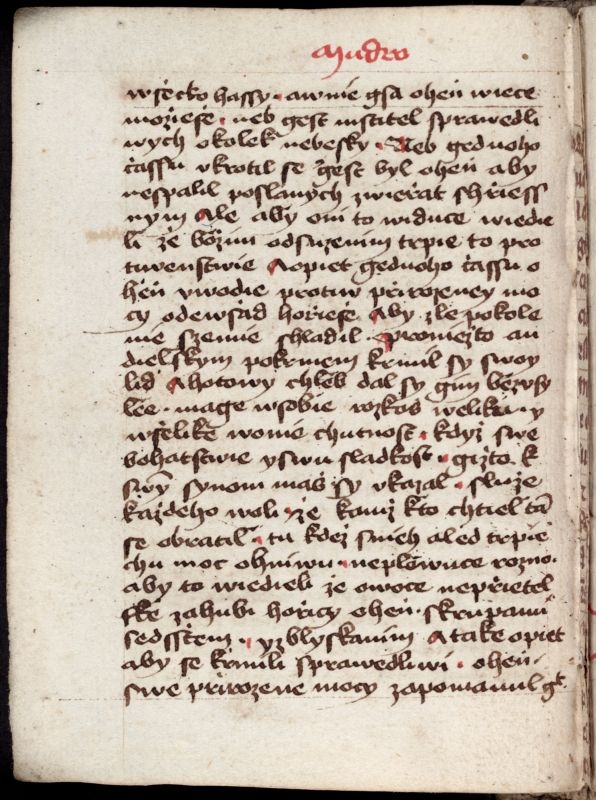 Mudro
wſecko haſſy · awnie gſa oheň wiece
možieſe · neb geſt mſtitel ſprawedli
wych okolek nebeſky · Neb gednoho
čaſſu vkrotil ſe geſt byl oheň aby
neſpalil poſlanych zwieřat k hřieſſ
nym Ale aby oni to widuce wiedie
li že božim odſuzenim trpie to pro
tiwenſtwie Aopiet gednoho čaſſu o
heň vwodie protiw přirozeney mo
cy odewſad hořieſe Aby zle pokole
nie ſzemie ſhladil · Proniežto an
dielſkym pokrmem krmil ſy ſwoy
lid Ahotowy chleb dal ſy gim bezvſy
lee · mage wſobie rozkoš weliku · y
wſelike wonie chutnoſt · když ſwe
bohatſtwie yſwu ſladkoſt · gižto k
ſwym ſynom maš ſy vkazal · ſluže
každeho woli · že kamž kto chtiel tā
ſe obratil · tu kdež ſnieh aled trpie
chu moc ohniwu · neplowuce rozno ·
aby to wiedieli že owoce nepřietel
ſke zahubi hořicy oheň · ſkrupami
ſedſſtem · yzblyſkanim Atake opiet
aby ſe krmili ſprawedliwi · oheň ·
ſwe přirozene mocy zapomanul gt